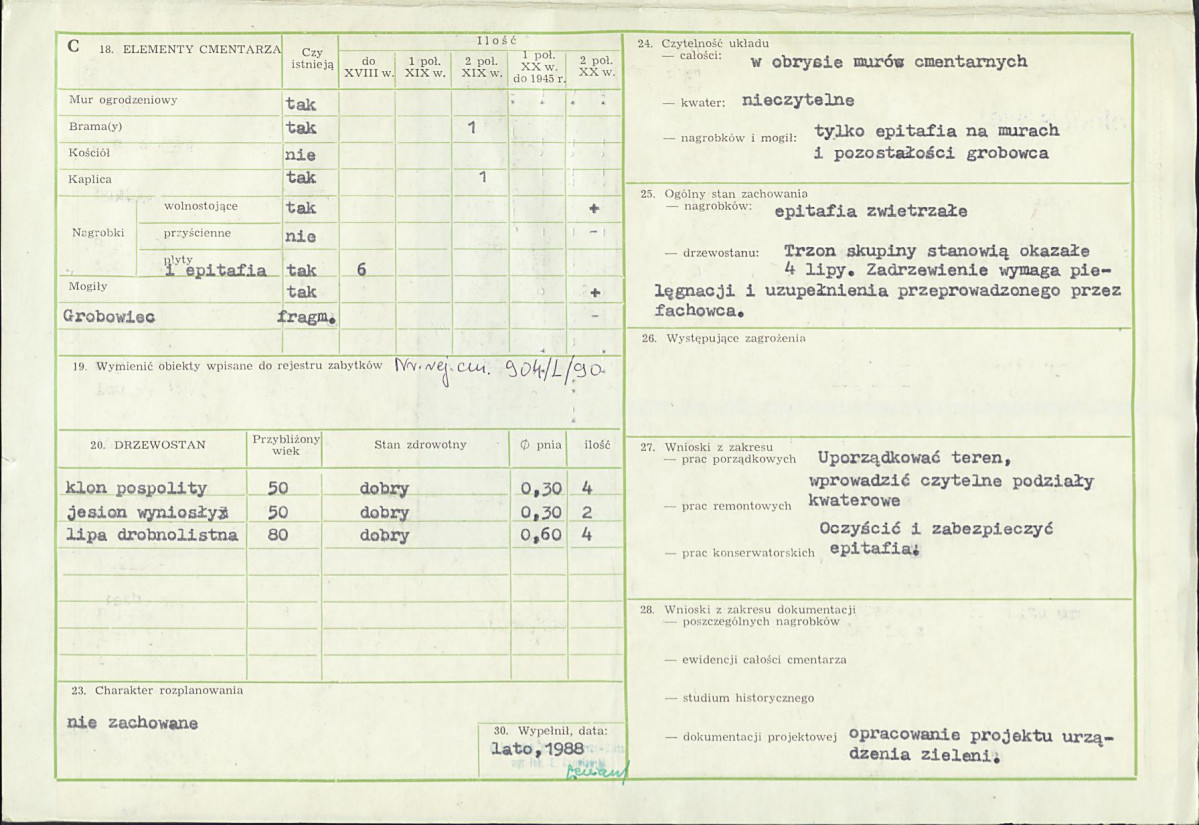 C 18. ELEMENTY CMENTARZA
Czy istnieją
Ilość
do XVIII w.
1 poł. XIX w.
2 poł. XIX w.
1 poł. XX w. do 1945 r.
2 poł. XX w.
Mur ogrodzeniowy tak
Brama(y) tak 1
Kościół nie
Kaplica tak 1
Nagrobki
wolnostojące tak +
przyścienne nie -
płyty
i epitafia tak 6
Mogiły tak +
Grobowiec fragm. -
19. Wymienić obiekty wpisane do rejestru zabytków Nr. rej. cm. 904/L/90
20. DRZEWOSTAN
Przybliżony wiek
Stan zdrowotny
Ø pnia
ilość
klon pospolity 50 dobry 0,30 4
jesion wyniosły 50 dobry 0,30 2
lipa drobnolistna 80 dobry 0,60 4
23. Charakter rozplanowania
nie zachowane
30. Wypełnił, data:
lato,1988
24. Czytelność układu
— całości: w obrysie murów cmentarnych
— kwater: nieczytelne
— nagrobków i mogił: tylko epitafia na murach
i pozostałości grobowca
25. Ogólny stan zachowania
— nagrobków: epitafia zwietrzałe
— drzewostanu: Trzon skupiny stanowią okazałe
4 lipy. Zadrzewienie wymaga pie-
lęgnacji i uzupełnienia przeprowadzonego przez
fachowca.
26. Występujące zagrożenia
27. Wnioski z zakresu
— prac porządkowych Uporządkować teren,
wprowadzić czytelne podziały
— prac remontowych kwaterowe
Oczyścić i zabezpieczyć
— prac konserwatorskich epitafia.
28. Wnioski z zakresu dokumentacji
— poszczególnych nagrobków
— ewidencji całości cmentarza
— studium historycznego
— dokumentacji projektowej opracowanie projektu urzą-
dzenia zieleni.